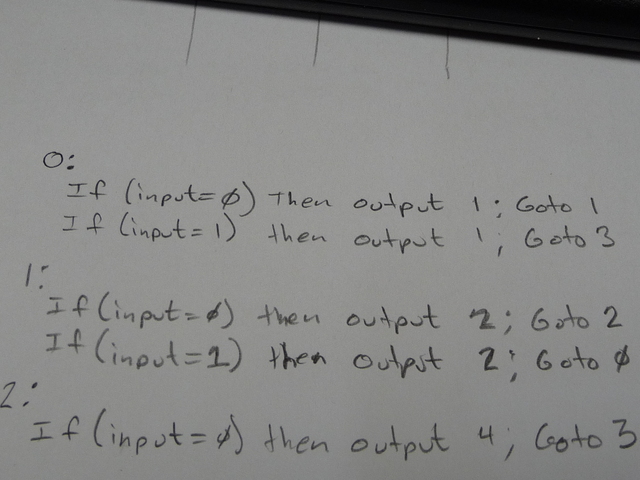 0:
If (input=ø) Then output 1; Goto 1
If (input=1) then output 1; Goto 3
1:
If (input=ø) then output 2; Goto 2
If (input=1) then output 2; Goto ø
2:
If (input=ø) then output 4; Goto 3